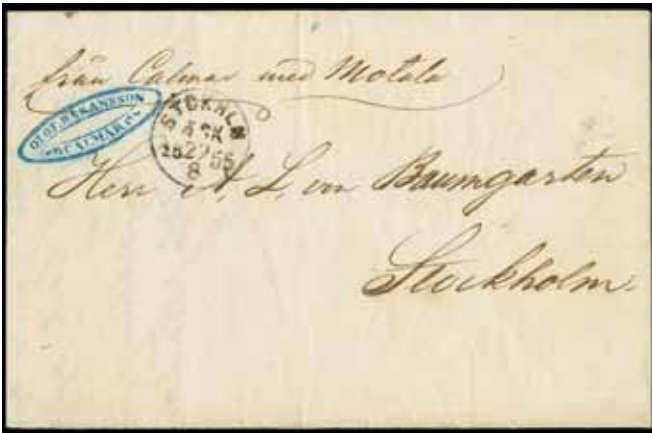 från Calmar med Motala
OLOF HÅKANSSON
CALMAR
STOCKHLM
ÅSK
18 22 55
8
Herr A. L. von Baumgarten
Stockholm.